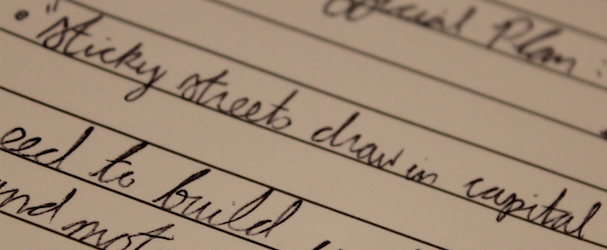 Special Plan:
• "Sticky streets draw in capital
eed to build
and not